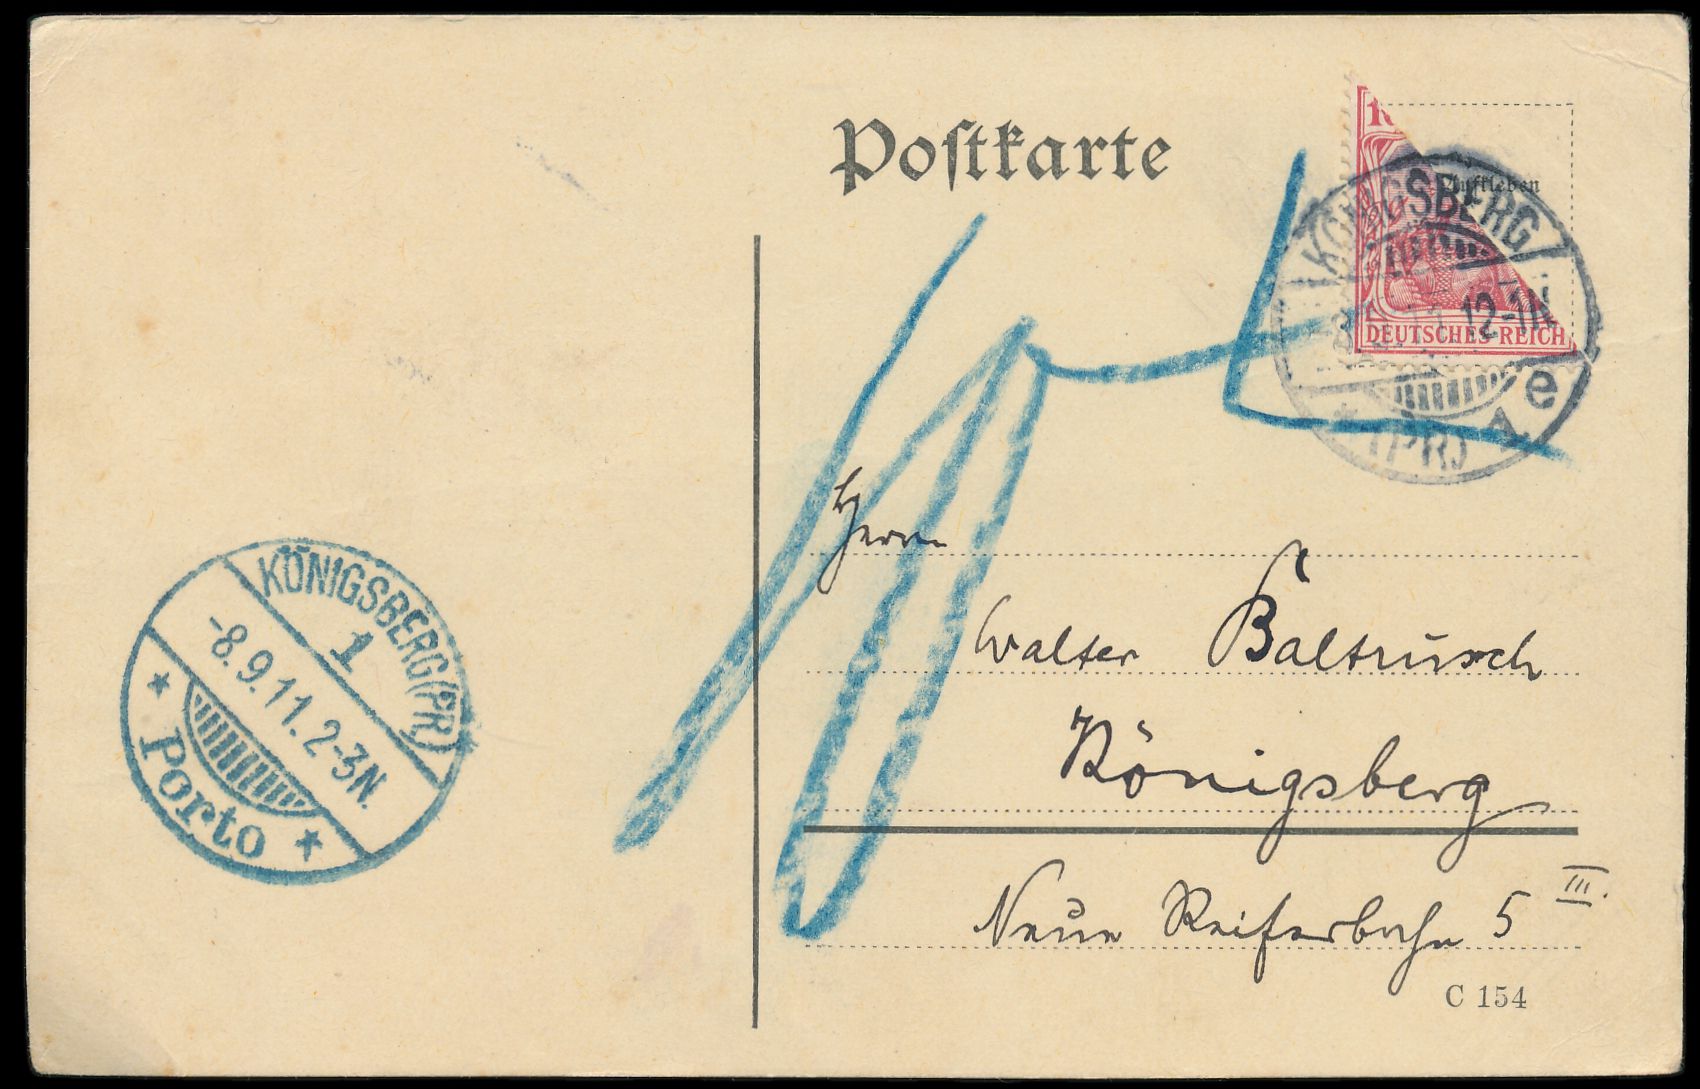 Postkarte
10
Aufkleben
KÖNIGSBERG
12-1N
DEUTSCHES REICH
(PR) 1 e
10
Herrn
Walter Baltrusch
Königsberg
Neue Reiferbahn 5 III.
C 154
KÖNIGSBERG (PR)
1
-8.9.11.2-3N.
* Porto *